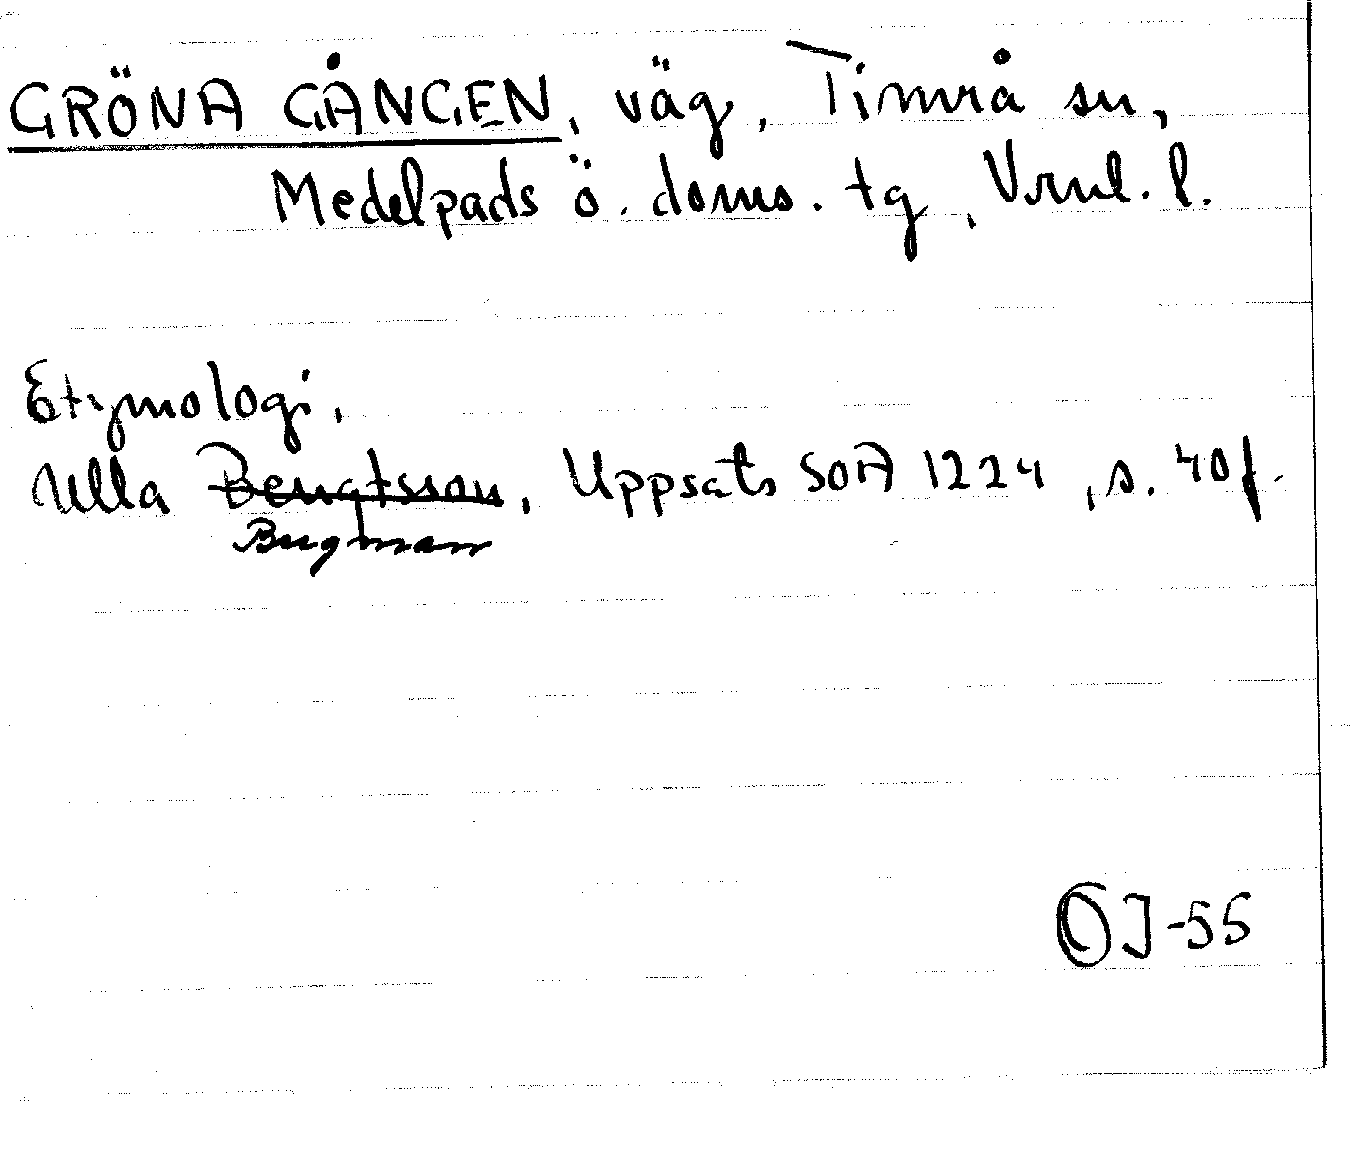 GRÖNA GÅNGEN, väg, Timrå sn,
Medelpads ö. doms. tg, Vrnl. l.
Etymologi,
Ulla Bengtsson, Uppsats SOA 1224, s. 40f.
Bergman
OJ-55